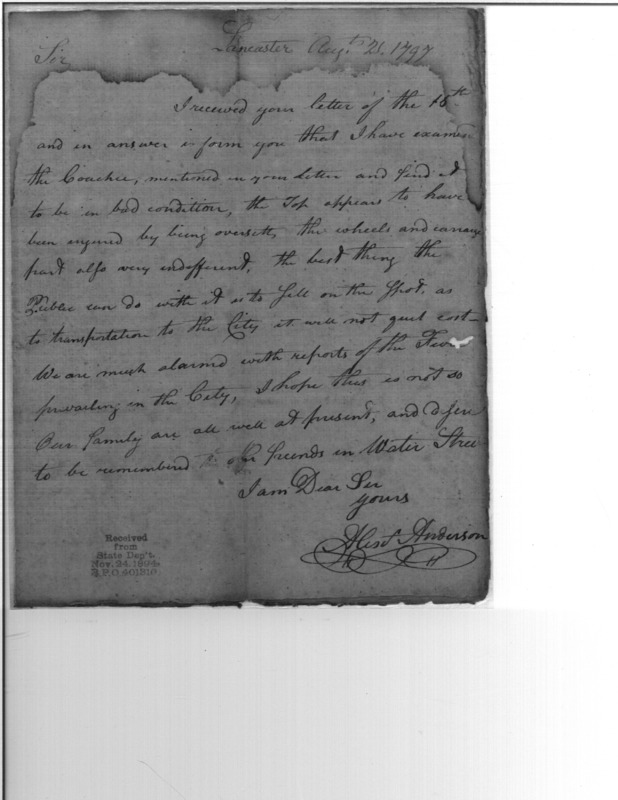 Lancaster Augt. 21. 1797
Sir
I received your letter of the 16th
and in answer inform you that I have examen
the Coachee, mentioned in your Letter and find it
to be in bad condition, the Top appears to have
been injured by being oversett, the wheels and carriage
part also very indefferent, the best thing the
Public can do with it is to sell on the spot, as
to transportation to the City it will not quit cost
We are much alarmed with reports of the Feve
prevailing in the City, I hope this is not so
Our family are all well at present, and desire
to be remembered to our friends in Water Stree
I am Dear Sir
yours
Alexr. Anderson
Received
from
State Dep't.
Nov. 24, 1894.
R. P. O. 401810.